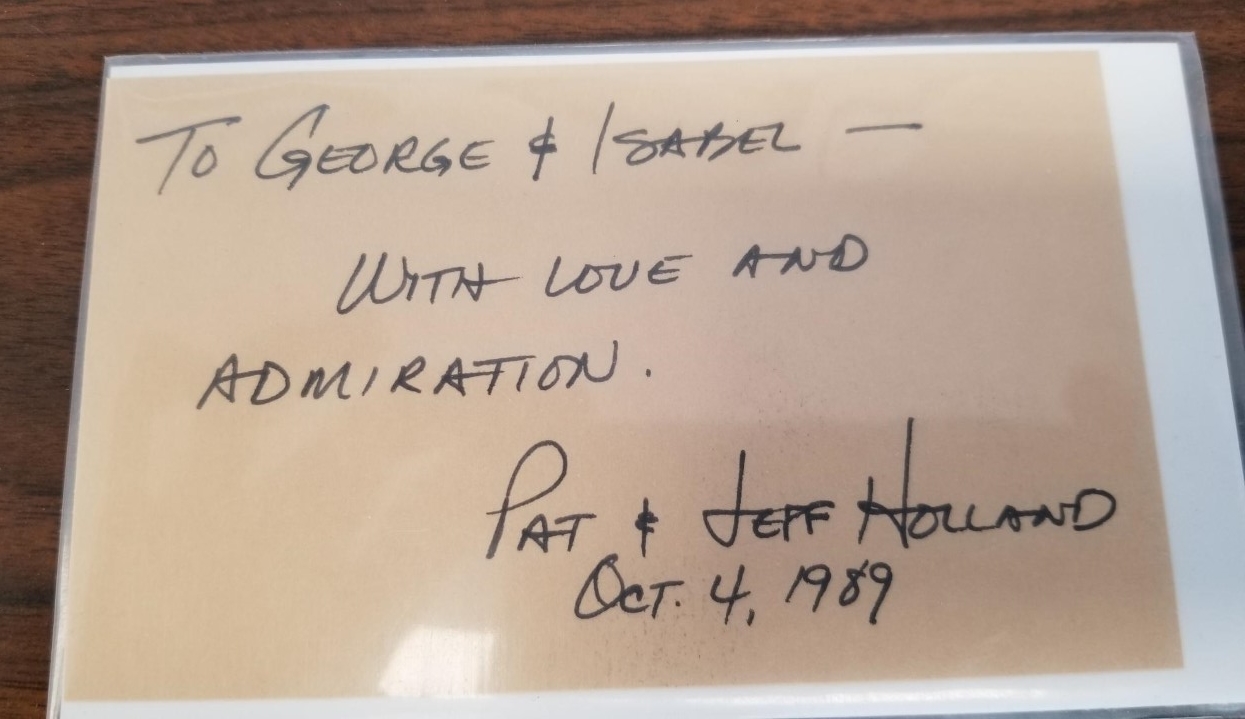 To George & Isabel —
With love and
admiration.
Pat & Jeff Holland
Oct. 4, 1989